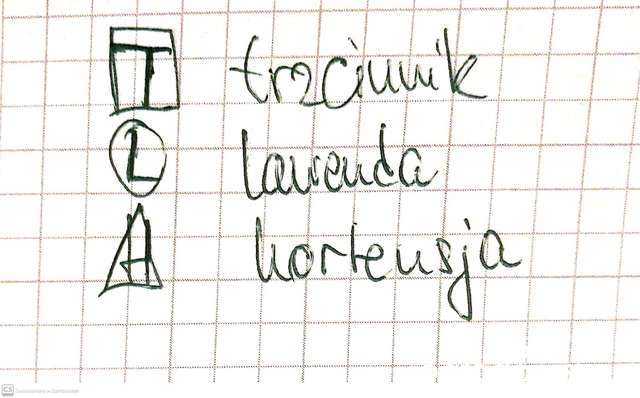 T trzcinnik
L lawenda
H hortensja
CS Zeskanowane w CamScanner